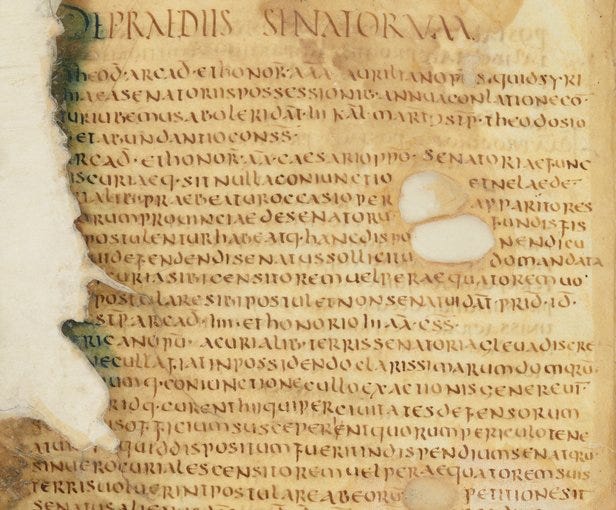 DEPRAEDIIS SENATORUM.
theod·arcad·ethonor·aaa·aurilianopu·s·quidsyri
maeasenatoriispossessionib·annuaconlationeco
turiubemusaboleridat·iii kal·mart·stp·theodosio
·etabundantioconss·
arcad·ethonor·aa·caesarioppo·senatoriaefunc
iscuriaeq·sitnullaconiunctio etnelaede
ialibpraebeaturoccasioper apparitores
arumprouinciaedesenatoru fundisfis
postulenturhabeatq·hancdispo nendicu
uidefendendisenatussollicitu domandata
curiasibicensitoremuelperaequatoremuo
postularesibipostuletnonsenatuidat·prid·id·
stp·arcad·iiii·ethonorioiii·aa·css·
ricanopu· acurialibterrissenatoriaglebadiscre
necullafiatinpossidendoclarissimarumdomoru
umq·coniunctionecullo exactionisgenereut
ridq·curenthiquipercivitatesdefensorum
officiumsusceperentquorumpericulotene
quiddispositumfueritindispendiumsenatoru
sinuerocurialescensitoremuelperaequatoremsuis
terrisuoluerintpostulareabeorg petitionesit